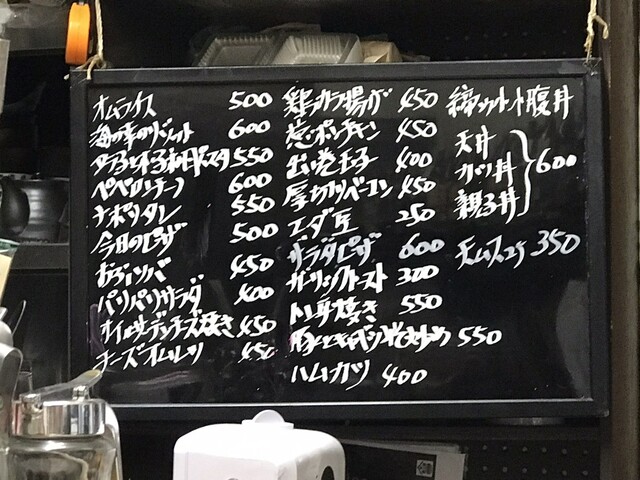 オムライス 500
海の幸のリゾット 600
タラコと和風パスタ 550
ペペロンチーノ 600
ナポリタン 550
今日のピザ 500
450
パリパリサラダ 400
オイルサーディンチーズ焼き 450
チーズオムレツ 450
鶏の唐揚げ 450
ポンチキン 450
出し巻玉子 400
厚切りベーコン 450
エダ豆 250
サラダピザ 600
ガーリックトースト 300
トン平焼き 550
豚とキャベツ 炒め 550
ハムカツ 400
腹丼
天丼
カツ丼
親子丼
600
天ムス 350